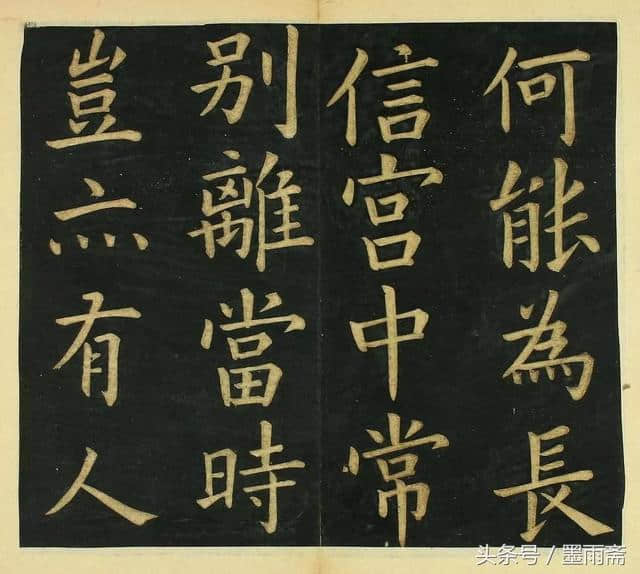 何能為長
信宮中常
别離當時
豈亦有人
头条号／墨雨斋